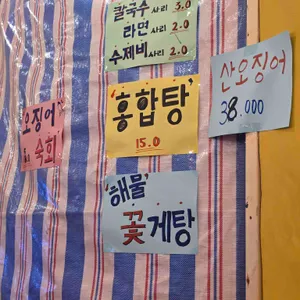 칼국수 사리 3.0
라면 사리 2.0
수제비 사리 2.0
"오징어"
숙회
"홍합탕"
15.0
산오징어
38.000
"해물"
꽃게탕